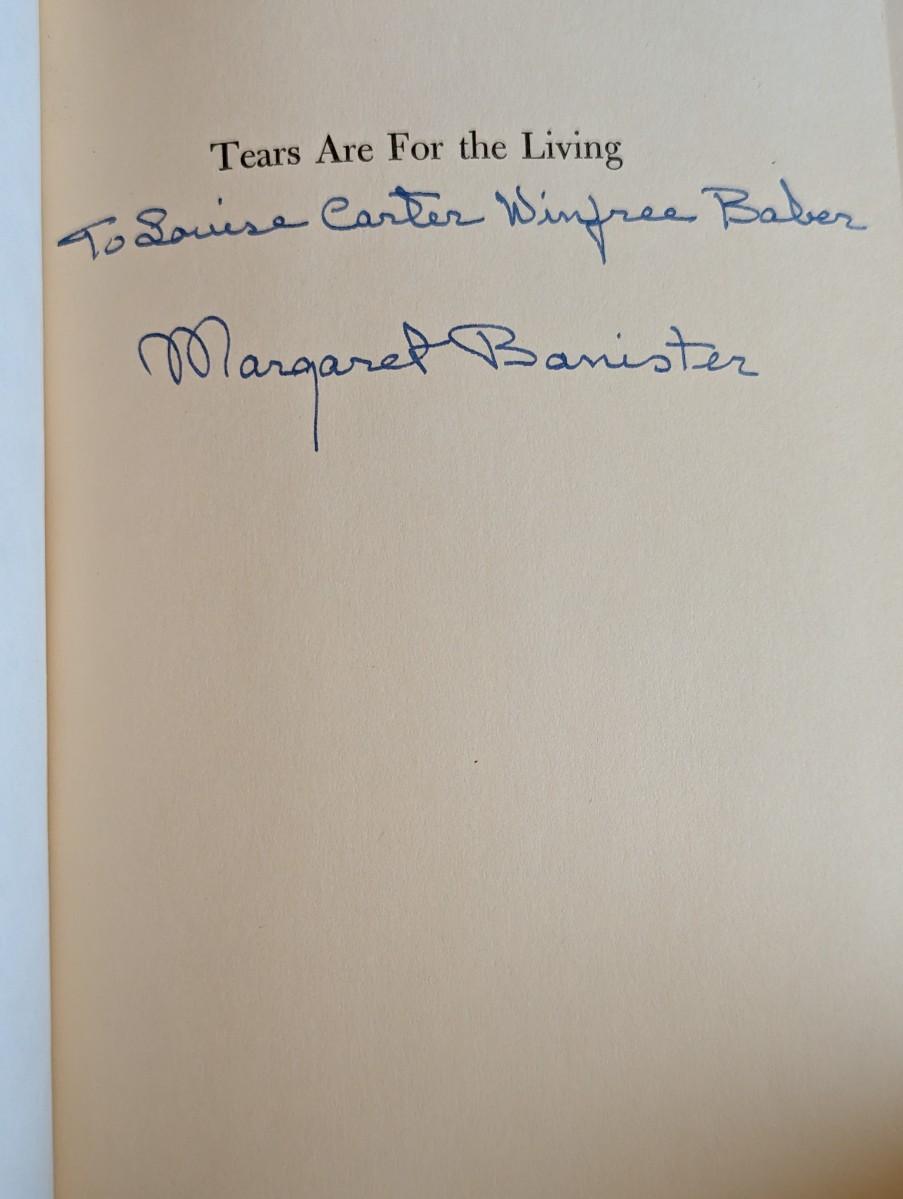 Tears Are For the Living
To Louise Carter Winfree Baber
Margaret Banister